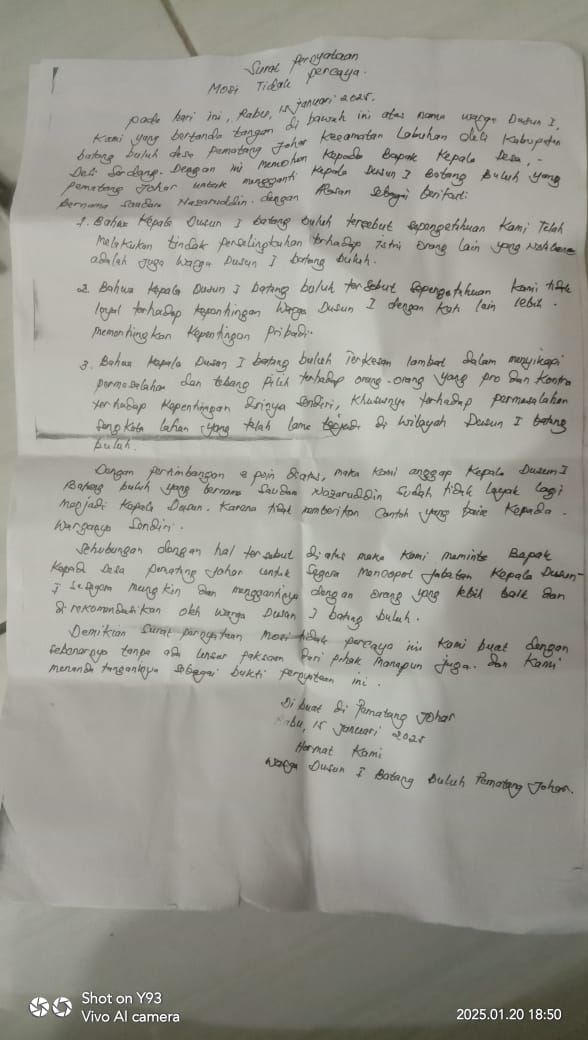 Surat pernyataan
Mosi Tidak percaya.
pada hari ini, Rabu, 15 januari 2025.
Kami yang bertanda tangan di bawah ini atas nama warga Dusun I,
batang buluh desa pematang Johar kecamatan Labuhan deli Kabupaten
Deli Serdang. Dengan ini memohon Kepada Bapak Kepala Desa,-
pematang Johar untuk mengganti Kepala Dusun I Batang Buluh yang
bernama saudara Nazaruddin. dengan Alasan sebagai berikut:
1. Bahwa Kepala Dusun I batang buluh tersebut sepengetahuan Kami Telah
melakukan tindak perselingkuhan terhadap Istri orang lain yang
adalah juga warga Dusun I batang buluh.
2. Bahwa Kepala Dusun I batang buluh tersebut sepengetahuan Kami tidak
loyal terhadap Kepentingan Warga Dusun I dengan Kata lain lebih
mementingkan Kepentingan Pribadi.
3. Bahwa Kepala Dusun I batang buluh Terkesan lambat dalam menyikapi
permasalahan dan tebang pilih terhadap orang-orang yang pro dan Kontra
terhadap Kepentingan dirinya sendiri, Khususnya terhadap permasalahan
Sengketa lahan yang telah lama terjadi di Wilayah Dusun I batang
buluh.
Dengan pertimbangan poin diatas, maka Kami anggap Kepala Dusun I
Batang buluh yang bernama Saudara Nazaruddin sudah tidak layak lagi
menjadi Kepala Dusun. Karena tidak memberikan Contoh yang baik Kepada
Warganya Sendiri.
Sehubungan dengan hal tersebut diatas maka Kami meminta Bapak
Kepala Desa Pematang Johar untuk Segera Mencopot Jabatan Kepala Dusun-
I sesegera mungkin dan menggantinya dengan orang yang lebih baik dan
di rekomendasikan oleh warga Dusun I batang buluh.
Demikian Surat pernyataan Mosi tidak percaya ini Kami buat dengan
sebenarnya tanpa ada unsur paksaan dari pihak manapun juga. dan Kami
menanda tanganinya sebagai bukti pernyataan ini.
Di buat di Pematang Johar
Rabu, 15 Januari 2025
Hormat Kami
Warga Dusun I Batang Buluh Pematang Johar.
Shot on Y93
Vivo AI camera
2025.01.20 18:50